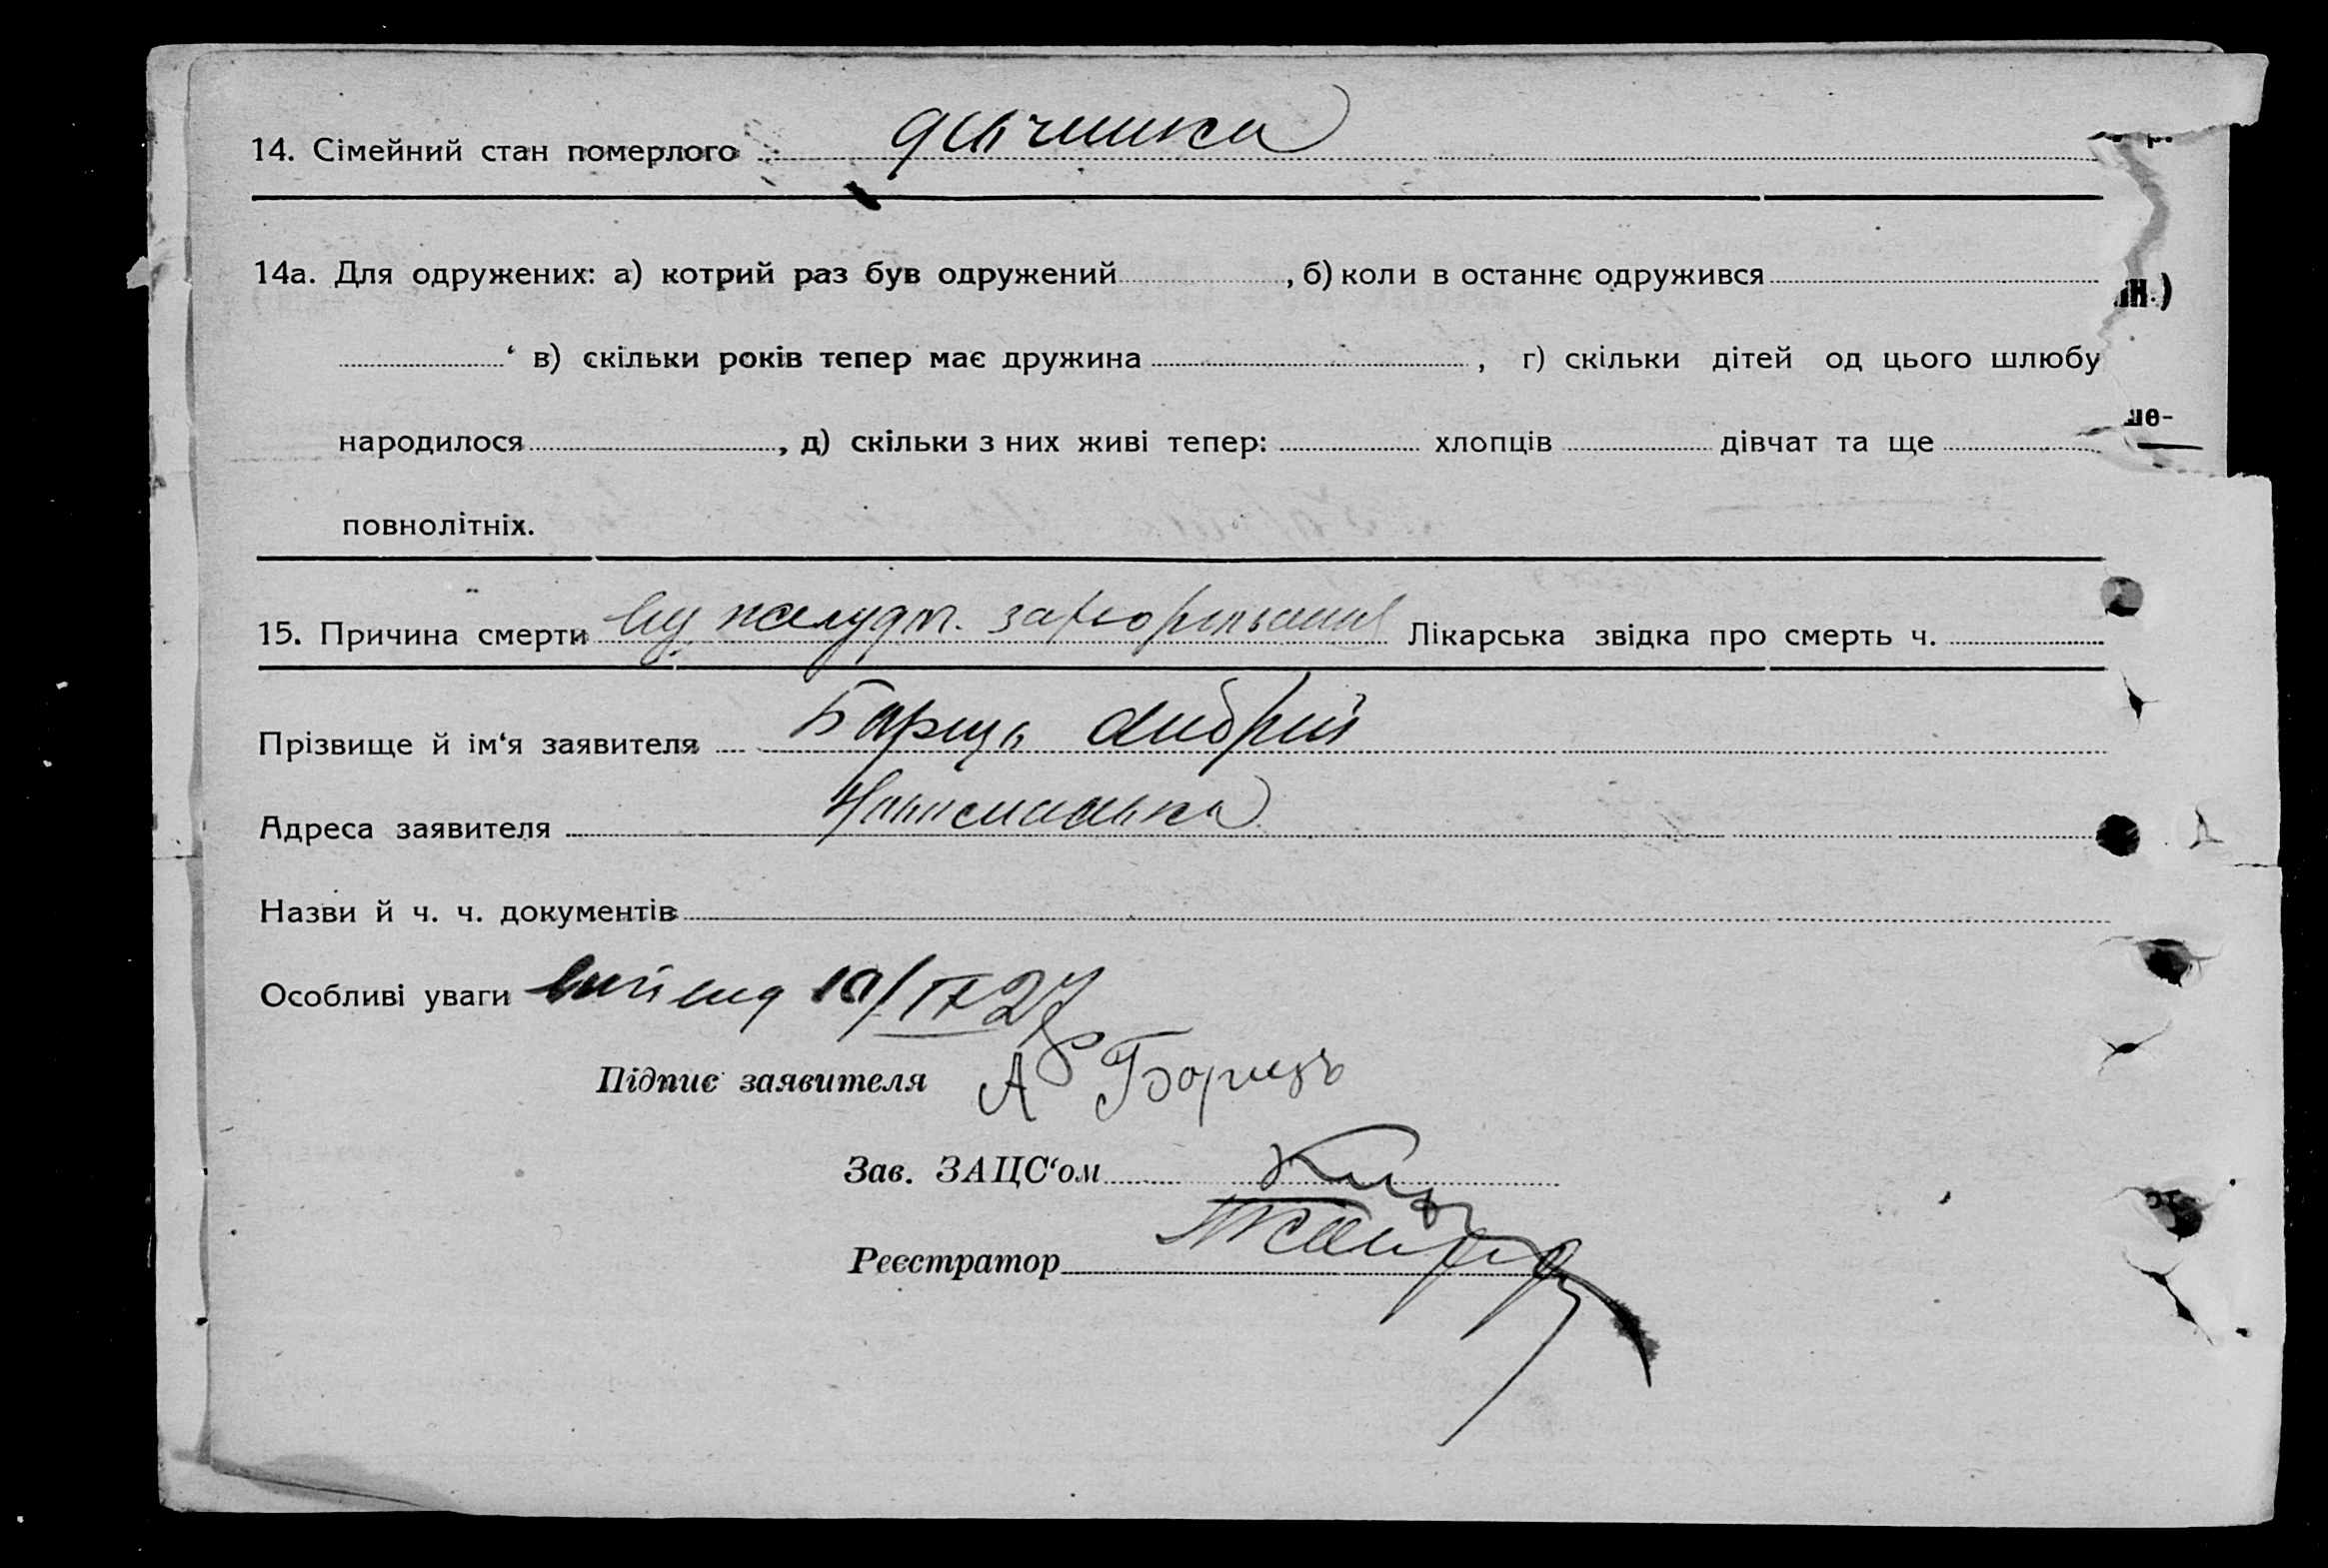 14. Сімейний стан померлого дівчинка
14а. Для одружених: а) котрий раз був одружений , б) коли в останнє одружився
ʻ в) скільки років тепер має дружина , г) скільки дітей од цього шлюбу
народилося , д) скільки з них живі тепер: хлопців дівчат та ще
повнолітніх.
15. Причина смерти Лікарська звідка про смерть ч.
Прізвище й імʻя заявителя Борець Андрій
Адреса заявителя
Назви й ч. ч. документів
Особливі уваги 10/IX 27
Підпис заявителя А Борець
Зав. ЗАЦСʻом
Реєстратор